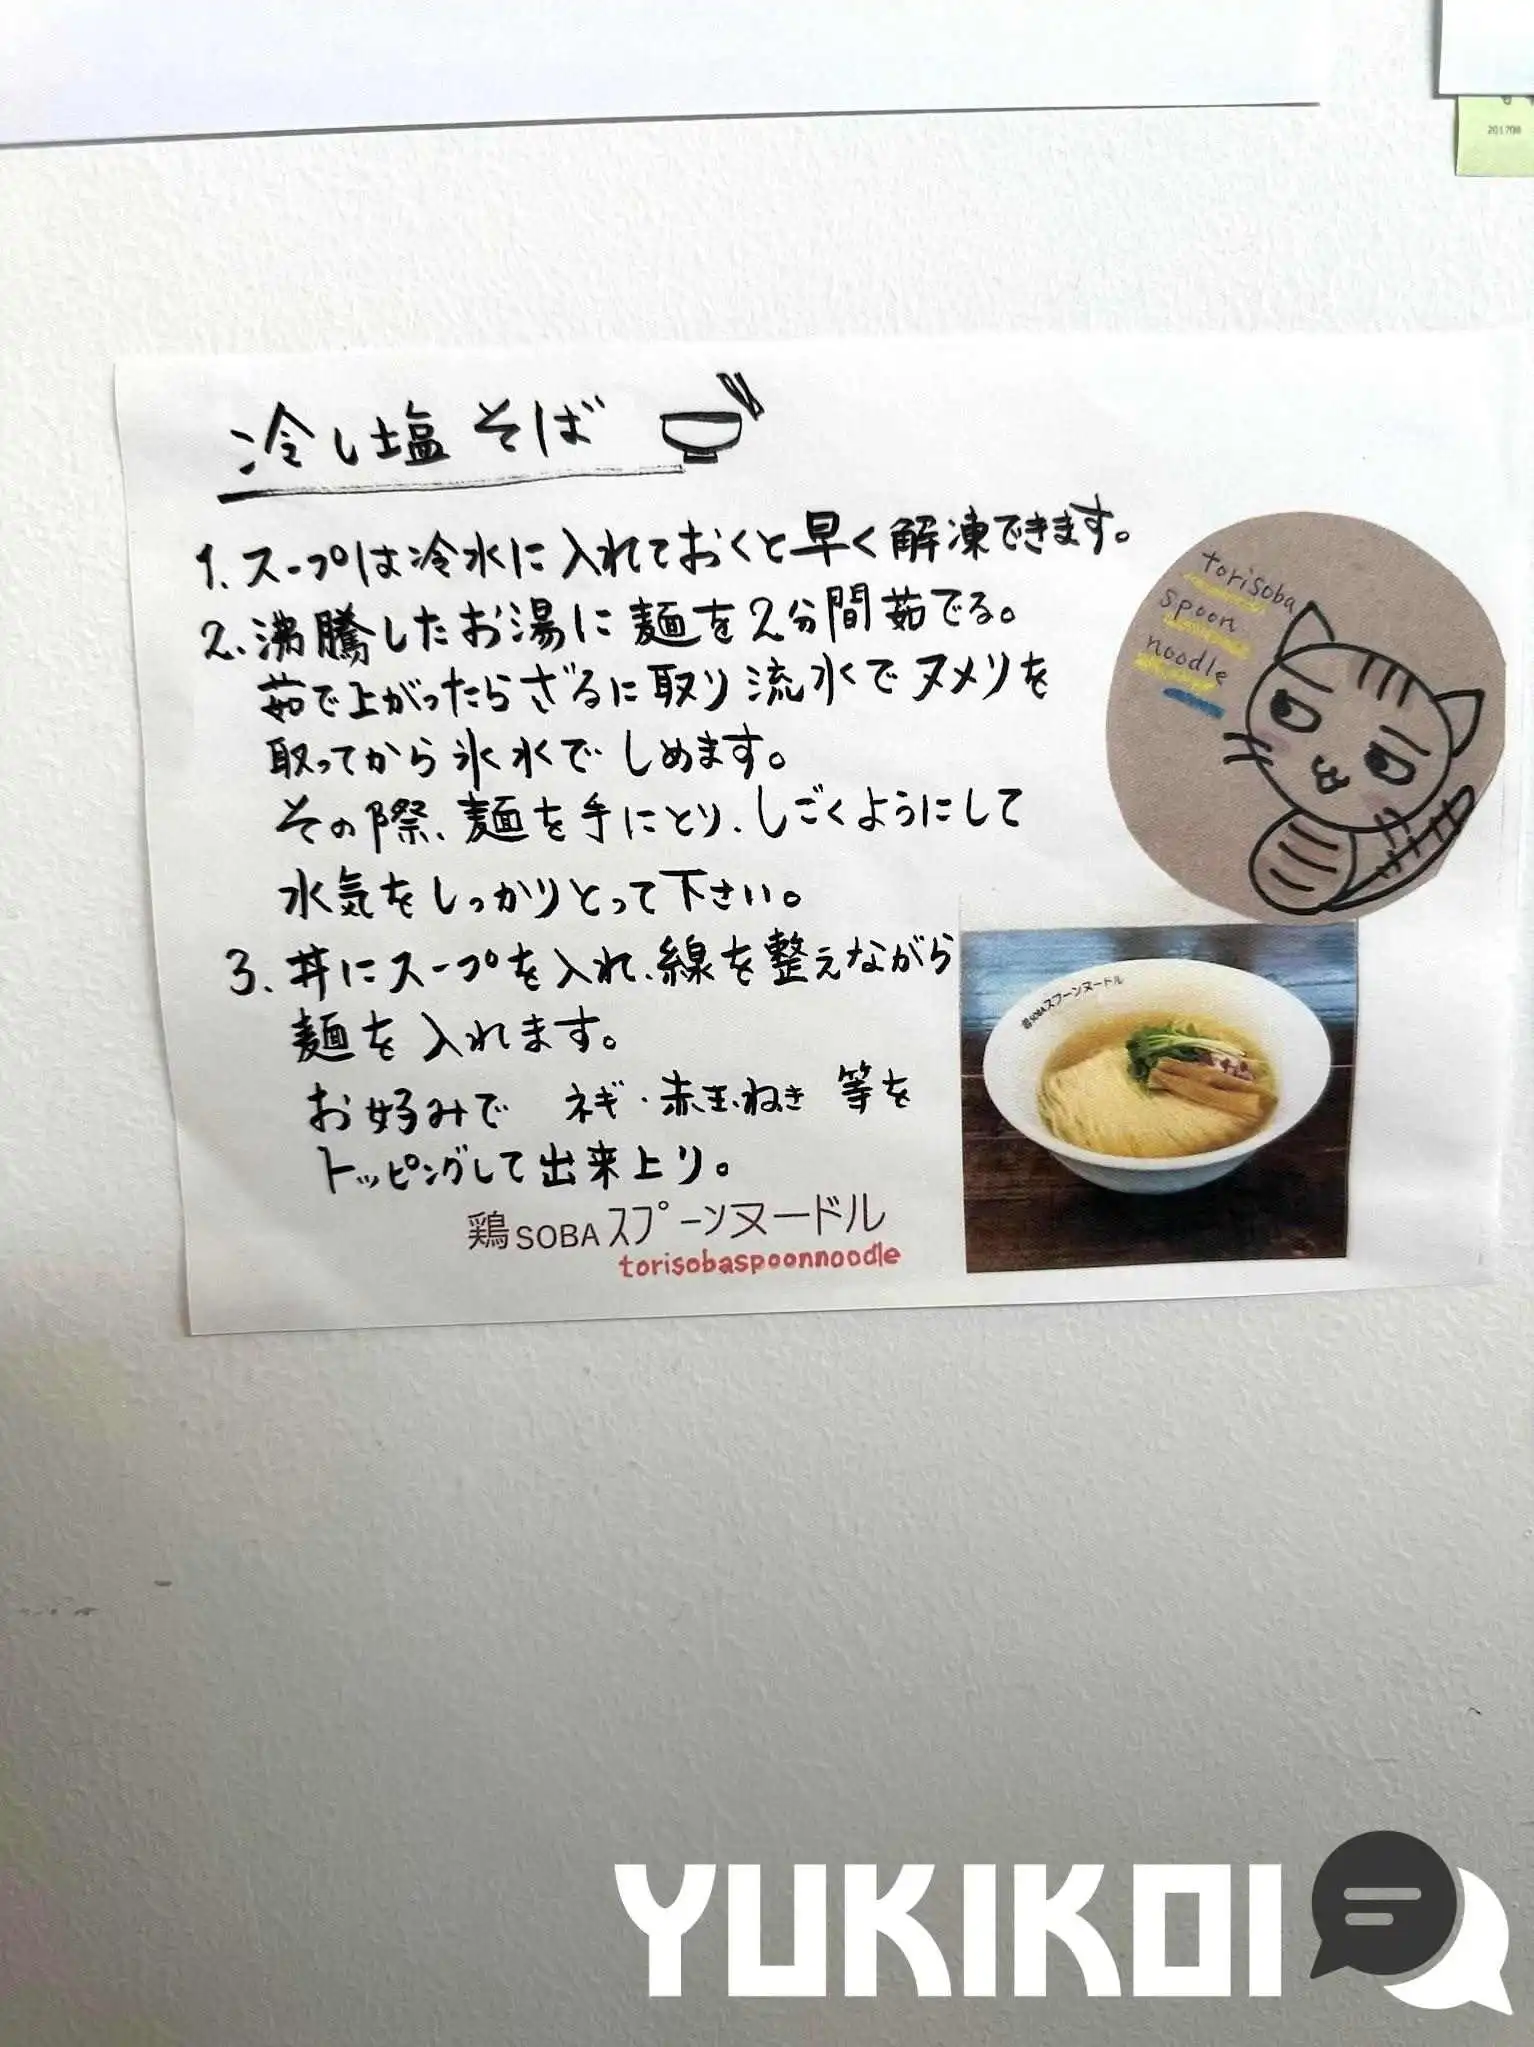 201708
冷し塩そば
1. スープは冷水に入れておくと早く解凍できます。
2. 沸騰したお湯に麺を2分間茹でる。
茹で上がったらざるに取り流水でヌメリを
取ってから氷水でしめます。
その際、麺を手にとり、しごくようにして
水気をしっかりとって下さい。
3. 丼にスープを入れ、線を整えながら
麺を入れます。
お好みで ネギ・赤玉ねぎ 等を
トッピングして出来上り。
鶏SOBAスプーンヌードル
torisobaspoonnoodle
torisoba
spoon
noodle
鶏SOBAスプーンヌードル
YUKIKOI